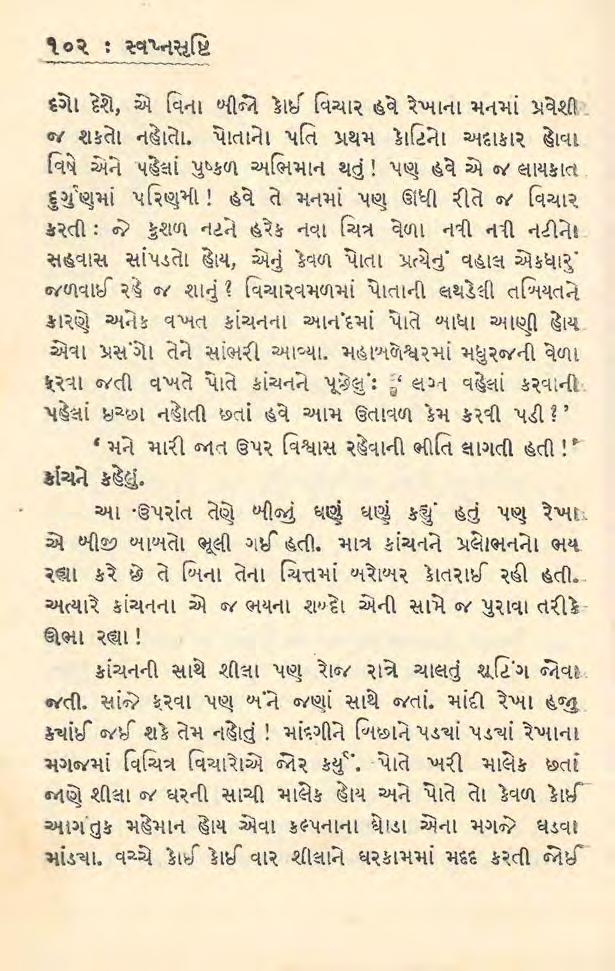 ૧૦૨ : સ્વપ્નસૃષ્ટિ
દગો દેશે, એ વિના બીજો કોઈ વિચાર હવે રેખાના મનમાં પ્રવેશી
જ શકતો નહોતો. પોતાનો પતિ પ્રથમ કોટિનો અદાકાર હોવા
વિષે એને પહેલાં પુષ્કળ અભિમાન થતું! પણ હવે એ જ લાયકાત
દુર્ગુણમાં પરિણમી! હવે તે મનમાં પણ ઊંધી રીતે જ વિચાર
કરતી : જે કુશળ નટને હરેક નવા ચિત્ર વેળા નવી નવી નટીનો
સહવાસ સાંપડતો હોય, એનું કેવળ પોતા પ્રત્યેનું વહાલ એકધારું
જળવાઈ રહે જ શાનું? વિચારવમળમાં પોતાની લથડેલી તબિયતને
કારણે અનેક વખત કાંચનના આનંદમાં પોતે બાધા આણી હોય
એવા પ્રસંગો તેને સાંભરી આવ્યા. મહાબળેશ્વરમાં મધુરજની વેળા
ફરવા જતી વખતે પોતે કાંચનને પૂછેલું: ‘ લગ્ન વહેલાં કરવાની
પહેલાં ઇચ્છા નહોતી છતાં હવે આમ ઉતાવળ કેમ કરવી પડી?’
‘ મને મારી જાત ઉપર વિશ્વાસ રહેવાની ભીતિ લાગતી હતી!’
કાંચને કહેલું.
આ ઉપરાંત તેણે બીજું ઘણું ઘણું કહ્યું હતું પણ રેખા
એ બીજી બાબતો ભૂલી ગઈ હતી. માત્ર કાંચનને પ્રલોભનનો ભય
રહ્યા કરે છે તે બિના તેના ચિત્તમાં બરોબર કોતરાઈ રહી હતી.
અત્યારે કાંચનના એ જ ભયના શબ્દો એની સામે જ પુરાવા તરીકે
ઊભા રહ્યા!
કાંચનની સાથે શીલા પણ રોજ રાત્રે ચાલતું શૂટિંગ જોવા
જતી. સાંજે ફરવા પણ બંને જણાં સાથે જતાં. માંદી રેખા હજી
ક્યાંઈ જઈ શકે તેમ નહોતું! માંદગીને બિછાને પડ્યાં પડ્યાં રેખાના
મગજમાં વિચિત્ર વિચારોએ જોર કર્યું. પોતે ખરી માલેક છતાં
જાણે શીલા જ ઘરની સાચી માલેક હોય અને પોતે તો કેવળ કોઈ
આગંતુક મહેમાન હોય એવા કલ્પનાના ઘોડા એના મગજે ઘડવા
માંડ્યા. વચ્ચે કોઈ કોઈ વાર શીલાને ઘરકામમાં મદદ કરતી જોઈ